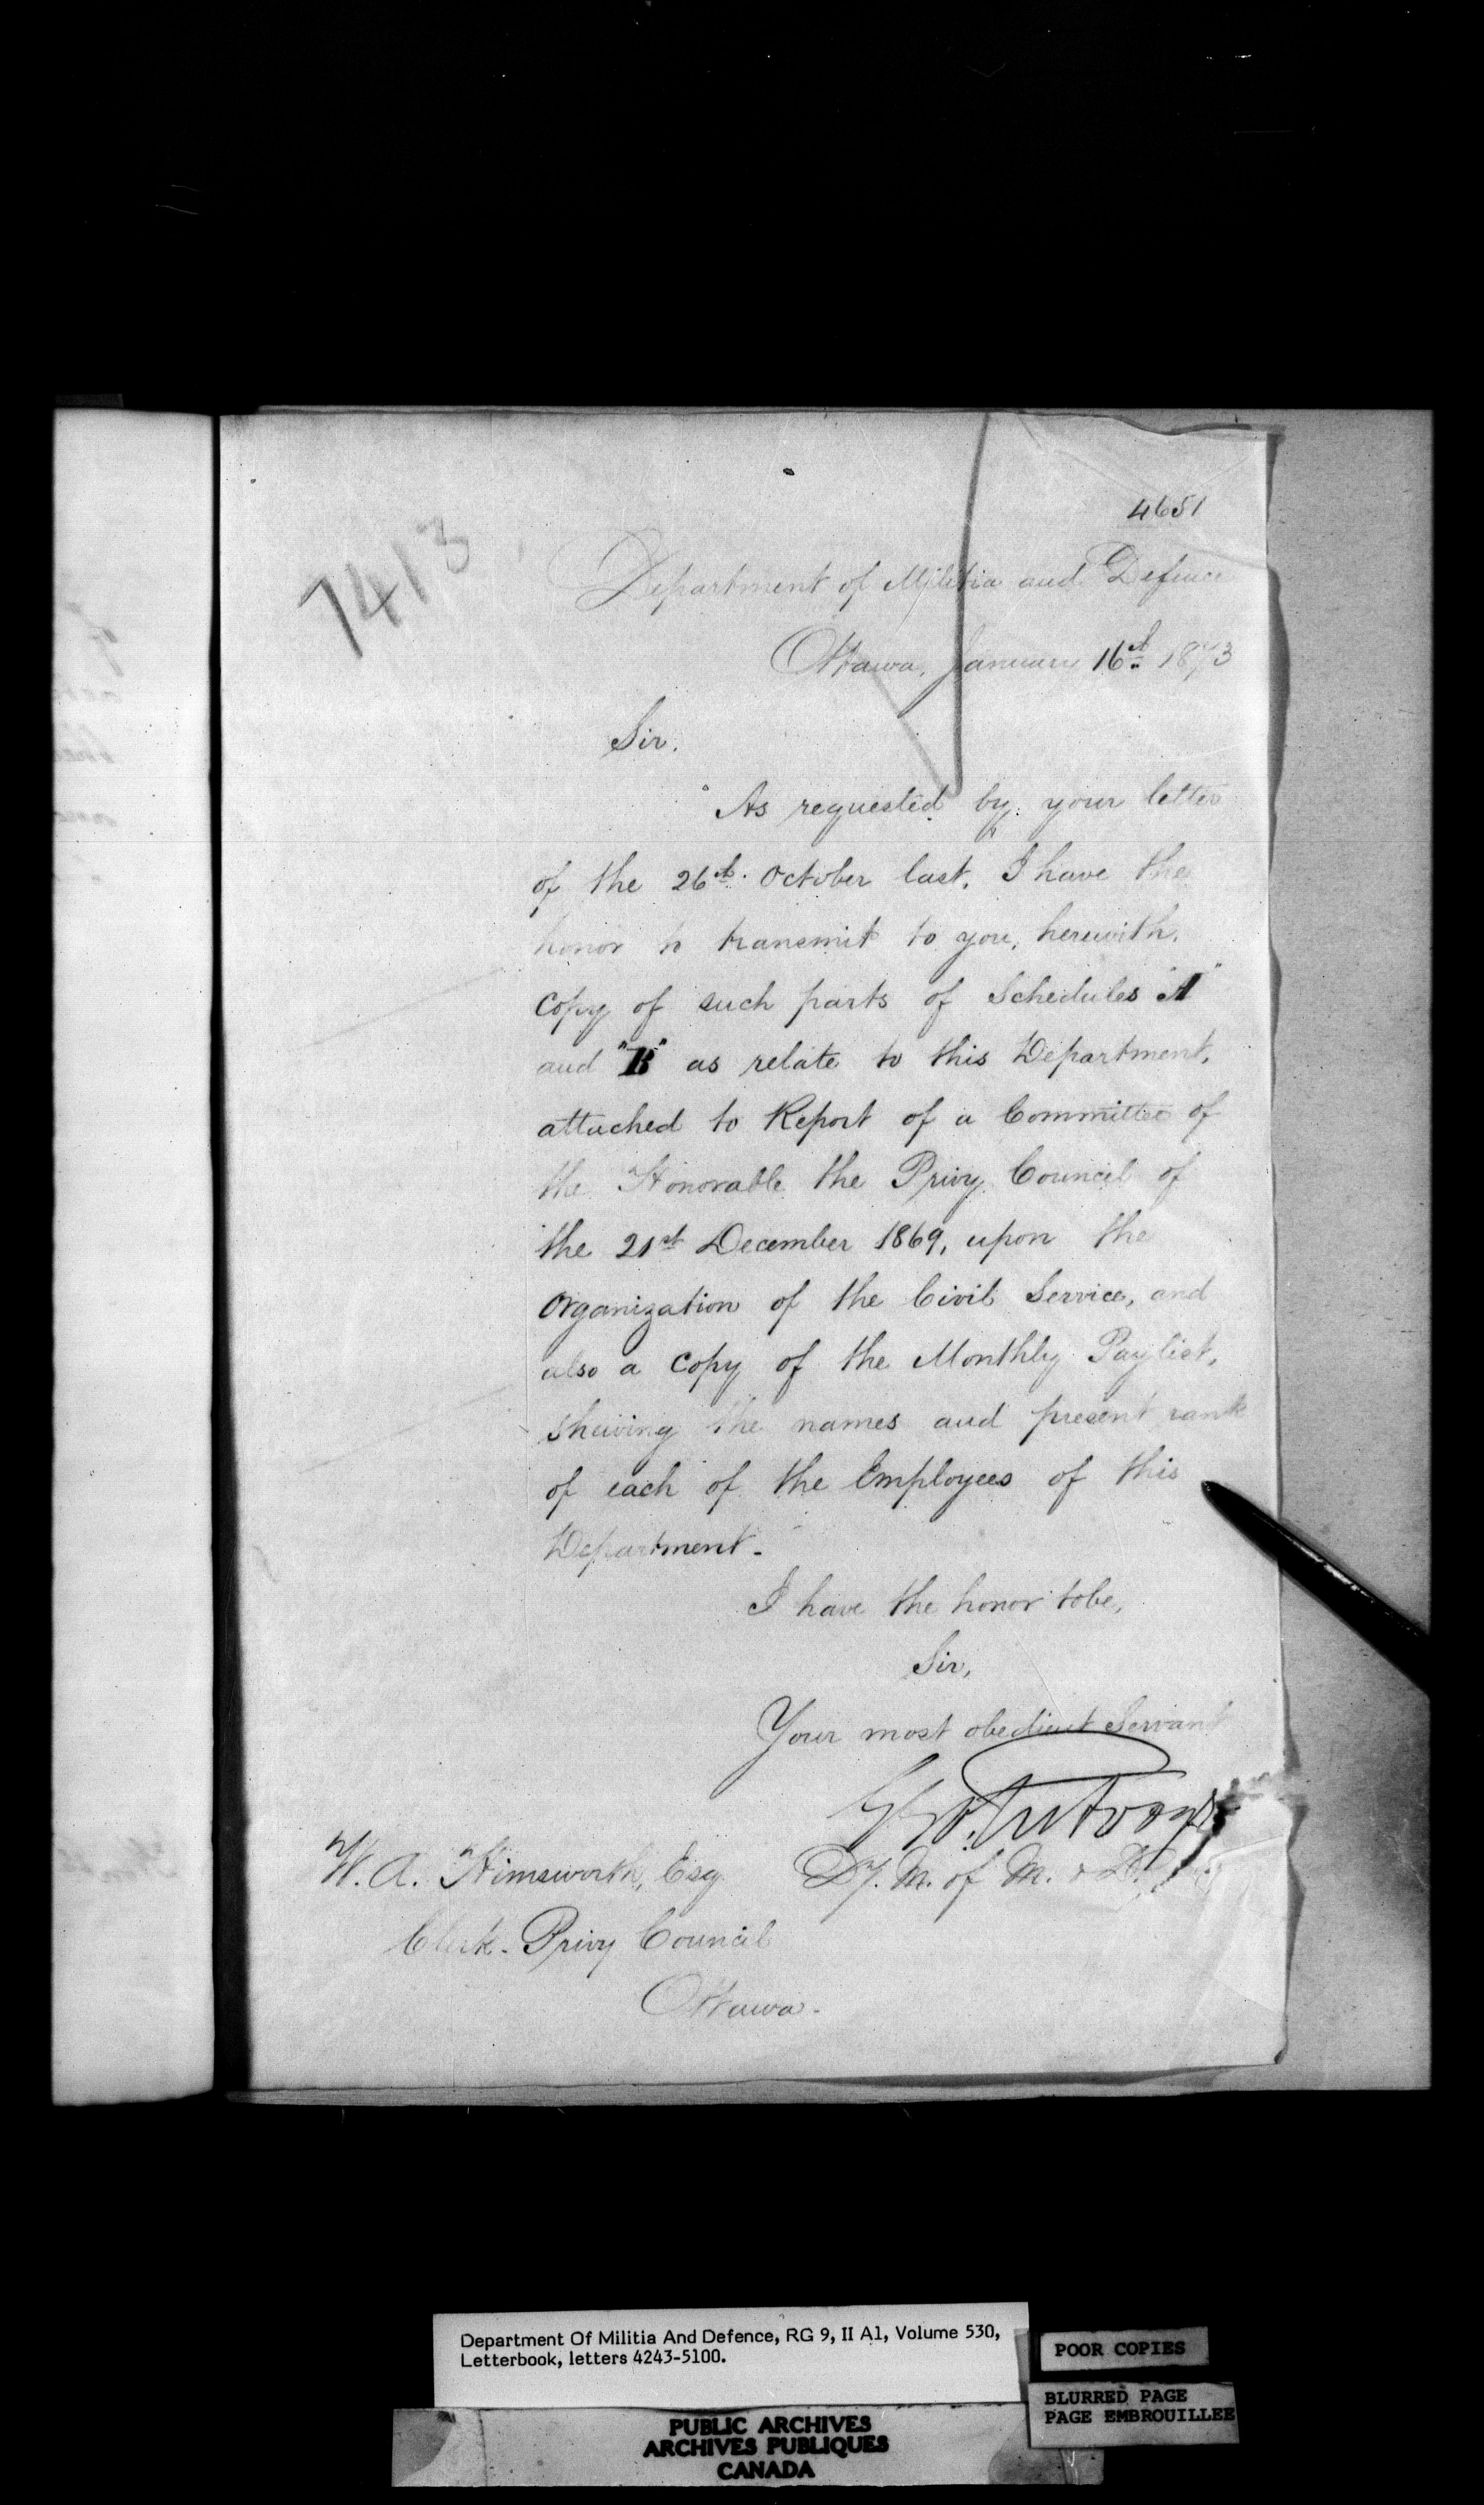 4651
7413
Department of Militia and Defence
Ottawa, January 16th 1873
Sir.
As requested by your letter
of the 26th October last, I have the
honor to transmit to you, herewith,
Copy of such parts of Schedules "A"
and "B" as relate to this Department,
attached to Report of a Committee of
the Honorable the Privy Council of
the 21st December 1869, upon the
Organization of the Civil Service, and
also a copy of the Monthly Paylist,
shewing the names and present rank
of each of the Employees of this
Department.
I have the honor to be,
Sir,
Your most obedient Servant
Dy. M. of M. & D.
W. A. Himsworth, Esq
Clerk. Privy Council
Ottawa.
Department Of Militia And Defence, RG 9, II A1, Volume 530,
Letterbook, letters 4243-5100.
POOR COPIES
BLURRED PAGE
PAGE EMBROUILLEE
PUBLIC ARCHIVES
ARCHIVES PUBLIQUES
CANADA